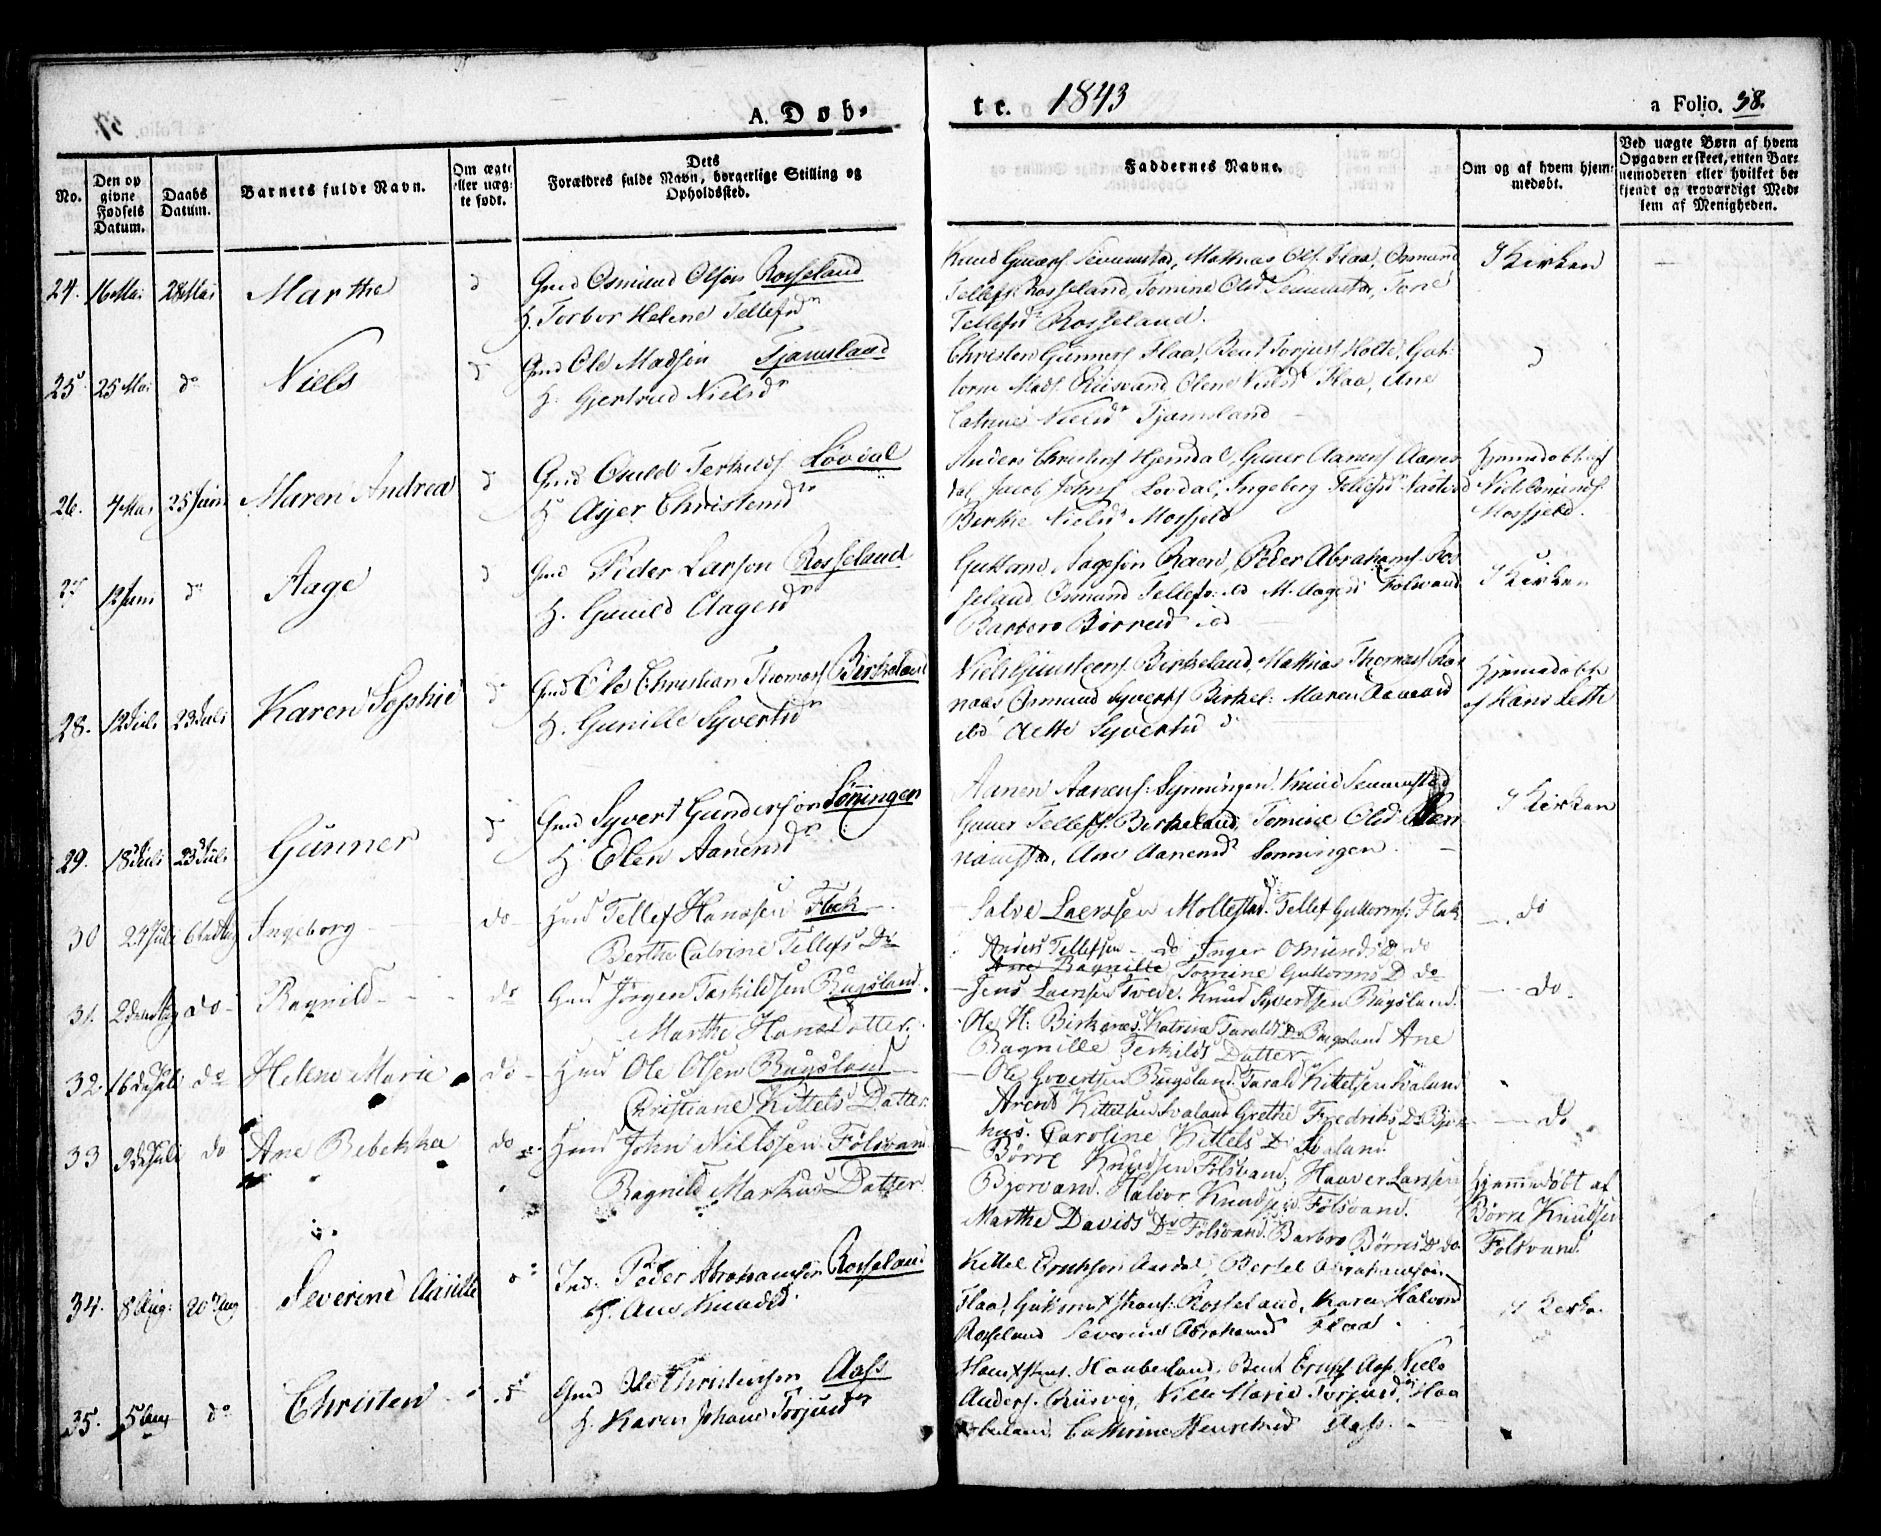 A. Døb-
te. 1843
a Folio. 58.
No.
Den opgivne Fødsels Datum.
Daabs Datum.
Barnets fulde Navn.
Om ægte eller uægte født.
Dets Forældres fulde Navn, borgerlige Stilling og Opholdssted.
Faddernes Navne.
Om og af hvem hjemmedøbt.
Ved uægte Børn af hvem Opgaven er skeet, enten Barnemoderen eller hvilket bekjendt og troværdigt Medlem af Menigheden.
24. 16 Mai 28 Mai Marthe Gmd Osmund Olsen Rosseland
H. Torbor Helene Tellefsd
Knud Gunersen Senumstad, Mathias Ols. Flaa, Osmund
Tellefs. Rosseland, Tomine Olsd Senumstad, Tone
Tellefsd Rosseland.
I Kirken
25. 25 Mai do Niels Gmd Ole Madsen Tjamsland
H. Gjertrud Nielsd
Christen Gunners Flaa, Bent Torjus Holte,
Mads. Olene Nielsd Flaa, Ane
Catrine Nielsd Tjamsland
26. 7 Mai 25 Juni Maren Andrea Gmd Osuld Terkelds Lovdal
H. Asjer Christensd
Anders Christens Hjemdal, Guner Aanens Aanes
dal, Jacob Johns Lovdal, Ingeberg Tellefsd
Berthe Nielsd Mosfjeld
Hjemmedøbt af
Niels Osmunds
Mosfjeld.
27 12 Juni do Aage Gmd Peder Larsen Rosseland
H. Gunild Aagesd
Guttorm Aagesen Raen, Peder Abrahams. Ros
seland, Osmund Tellefs. ibd M. Aagesd Fölsvand
Barbro Børresd ibd
I Kirken
28. 12 Juli 23 Juli Karen Sophie Gmd Ole Christian Thomas Birkeland
H. Gunille Syvertsd
Niels Gunstens Birkeland, Mathias Thomas
naas Osmund Syverts Birkel: Maren
ibd Aette Syvertsd do
Hjemmedøbt
af Hans Leth
29. 18 Juli 23 Juli Gunner Gmd Syvert Gundersen Sönningen
H. Elen Aanensd
Aanen Aanens: Synningen, Knud Senumstad
Guner Tellefs. Birkeland, Tomine Olsd Sen
numstad, Ane Aanensd Sonningen.
I Kirken
30 24 Juli 6te Aug Ingeborg do Gmd Tellef Hanssen Flak
Berthe Catrine Tellefs Dr
Salve Laerssen Mollestad. Tellef Guttorms: Flak
Anders Tellefsen do Inger Osmunds Dr do
Ane Ragnille Tomine Guttorms D do
do
31. 2den Aug do Ragnild do Gmd Jörgen Taskildsen Rugsland.
Marthe Hans Datter.
Jens Laerssen Tvede. Knud Syvertsen Rugsland.
Ole H: Birkenes. Katrine Taralds Dr Rugsland Ane
Ragnille Terkilds Datter
do
32. 16de Juli do Helene Marie do Gmd Ole Olsen Rugsland
Christiane Kittels Datter.
Ole Syvertsen Rugsland. Tarald Kittelsen Svaland
Arent Kittelsen Svaland Grethe Fredriks Dr Bjor
hus. Caroline Kittels Dr Svaland.
do
33 3de Juli do Ane Rebekka do Gmd John Nielssen Fölsvand.
Ragnild Markus Datter.
Börre Knudsen Fölsvand. Haaver Larssen
Bjorvand. Halvor Knudsen Fölsvand.
Marthe Davids Dr Fölsvand. Barbro Börres Dr do
Hjemmedöbt af
Börre Knudsen
Fölsvand.
34. 8 Aug: 20 Aug Severine Peder Abrahamsen Rosseland
H. Ane Knudsd
Kittel Eriksen Aardal, Bertel Abrahamsen
Flaa, Rosseland, Karen Halvorsd
Rosseland Severine Abrahamsd Flaa
I Kirken
35. 5 Aug do Christen Gmd Ole Christensen Aass
H. Karen Johane Torjusd
Haaberland, Bent Aas, Niels
Anders. Marie Torjusd, Haa
berland, Cathrine Henriksd Aass.